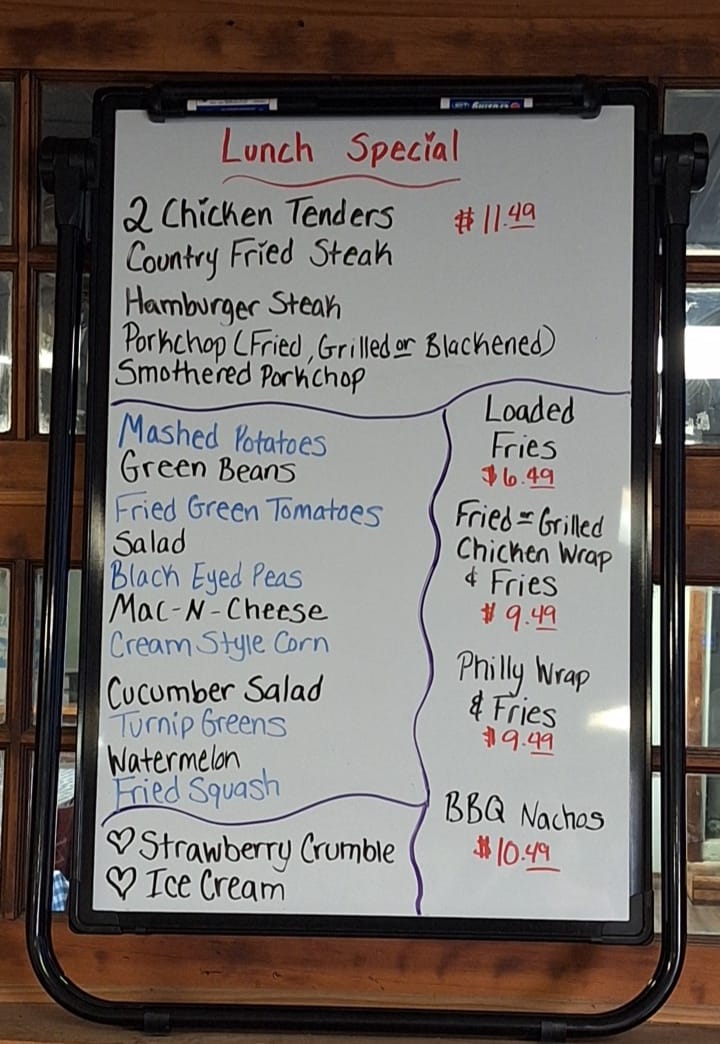 Lunch Special
2 Chicken Tenders $11.49
Country Fried Steak
Hamburger Steak
Porkchop (Fried, Grilled or Blackened)
Smothered Porkchop
Mashed Potatoes
Green Beans
Fried Green Tomatoes
Salad
Black Eyed Peas
Mac-N-Cheese
Cream Style Corn
Cucumber Salad
Turnip Greens
Watermelon
Fried Squash
♡ Strawberry Crumble
♡ Ice Cream
Loaded
Fries
$6.49
Fried or Grilled
Chicken Wrap
& Fries
$9.49
Philly Wrap
& Fries
$9.49
BBQ Nachos
$10.49